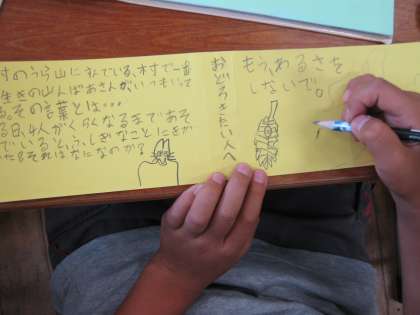 村のうら山にすんでいる、村で一番
生きの山んばあさんがいつもいって
る。その言葉とは…
る日、4人がくらくなるまであそ
でいると、ふしぎなことにきが
た。それはなになのか?
おどろきたい人へ
もう、わるさを
しないで。